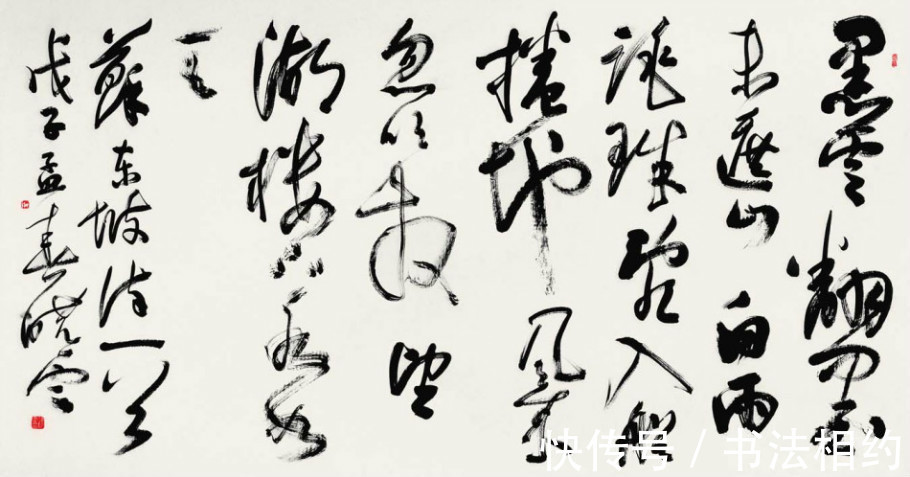 黑雲翻墨
未遮山白雨
跳珠亂入船
捲地風來
忽吹散望
湖樓下水如
天
蘇东坡诗一首
戊子孟春曉雲
快传号 / 书法相约